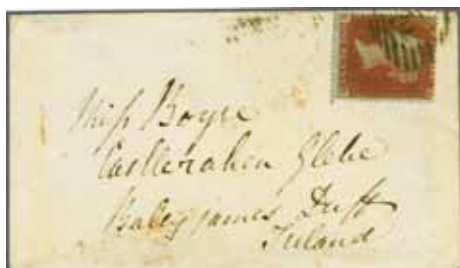 Miss Boyce
Castlerahen Glebe
Baley james Duff
Ireland